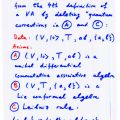 from the 4th definition of
a VA by deleting "quantum
corrections" in Ⓐ and Ⓒ:
Data: (V, |0>, T, ab, [aλb])
Axioms:
Ⓐ (V, |0>, T, ab) = a
unital differential
commutative associative algebra
Ⓑ (V, T, [aλb]) is a
Lie conformal algebra
Ⓒ Leibniz rule.